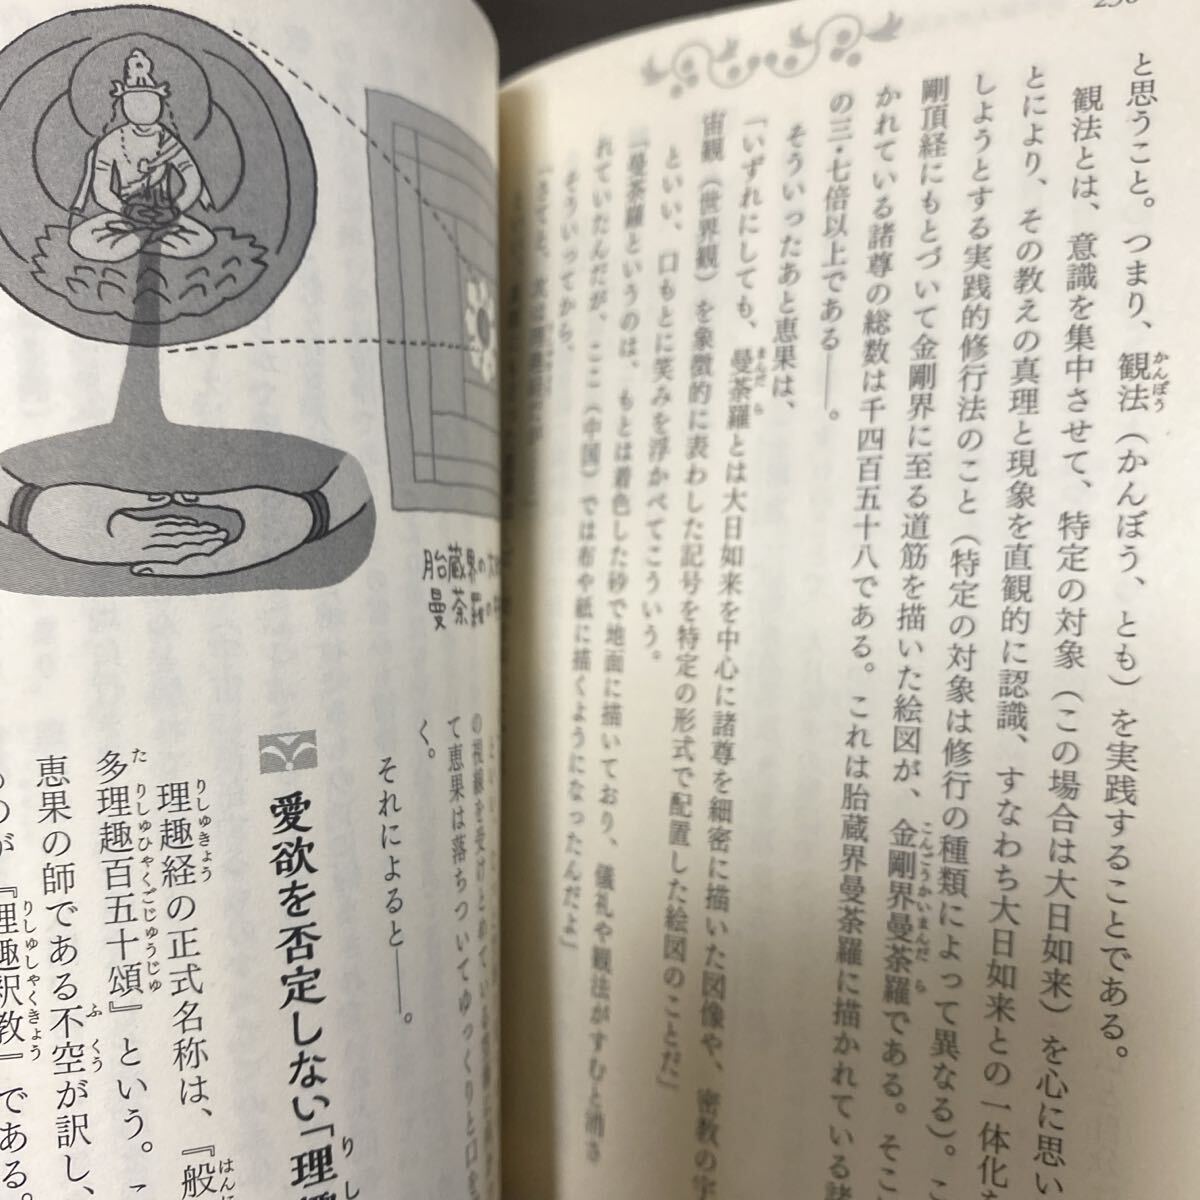 と思うこと。つまり、観法（かんぽう、とも）を実践することである。
観法とは、意識を集中させて、特定の対象（この場合は大日如来）を心に思い
とにより、その教えの真理と現象を直観的に認識、すなわち大日如来との一体化
しようとする実践的修行法のこと（特定の対象は修行の種類によって異なる）。こ
剛頂経にもとづいて金剛界に至る道筋を描いた絵図が、金剛界曼荼羅である。そこ
かれている諸尊の総数は千四百五十八である。これは胎蔵界曼荼羅に描かれている諸
の三・七倍以上である――。
そういったあと恵果は、
「いずれにしても、曼荼羅とは大日如来を中心に諸尊を細密に描いた図像や、密教の宇
宙観（世界観）を象徴的に表わした記号を特定の形式で配置した絵図のことだ」
といい、口もとに笑みを浮かべてこういう。
「曼荼羅というのは、もとは着色した砂で地面に描いており、儀礼や観法がすむと消さ
れていたんだが、ここ（中国）では布や紙に描くようになったんだよ」
そういってから、
「さてと、次は理趣経だが
胎蔵界の
曼荼羅の
の視線を受けとめている
て恵果は落ちついてゆっくりと口を
く。
それによると――。
愛欲を否定しない「理
理趣経の正式名称は、『般
多理趣百五十頌』という。こ
恵果の師である不空が訳し、
ものが『理趣釈教』である。